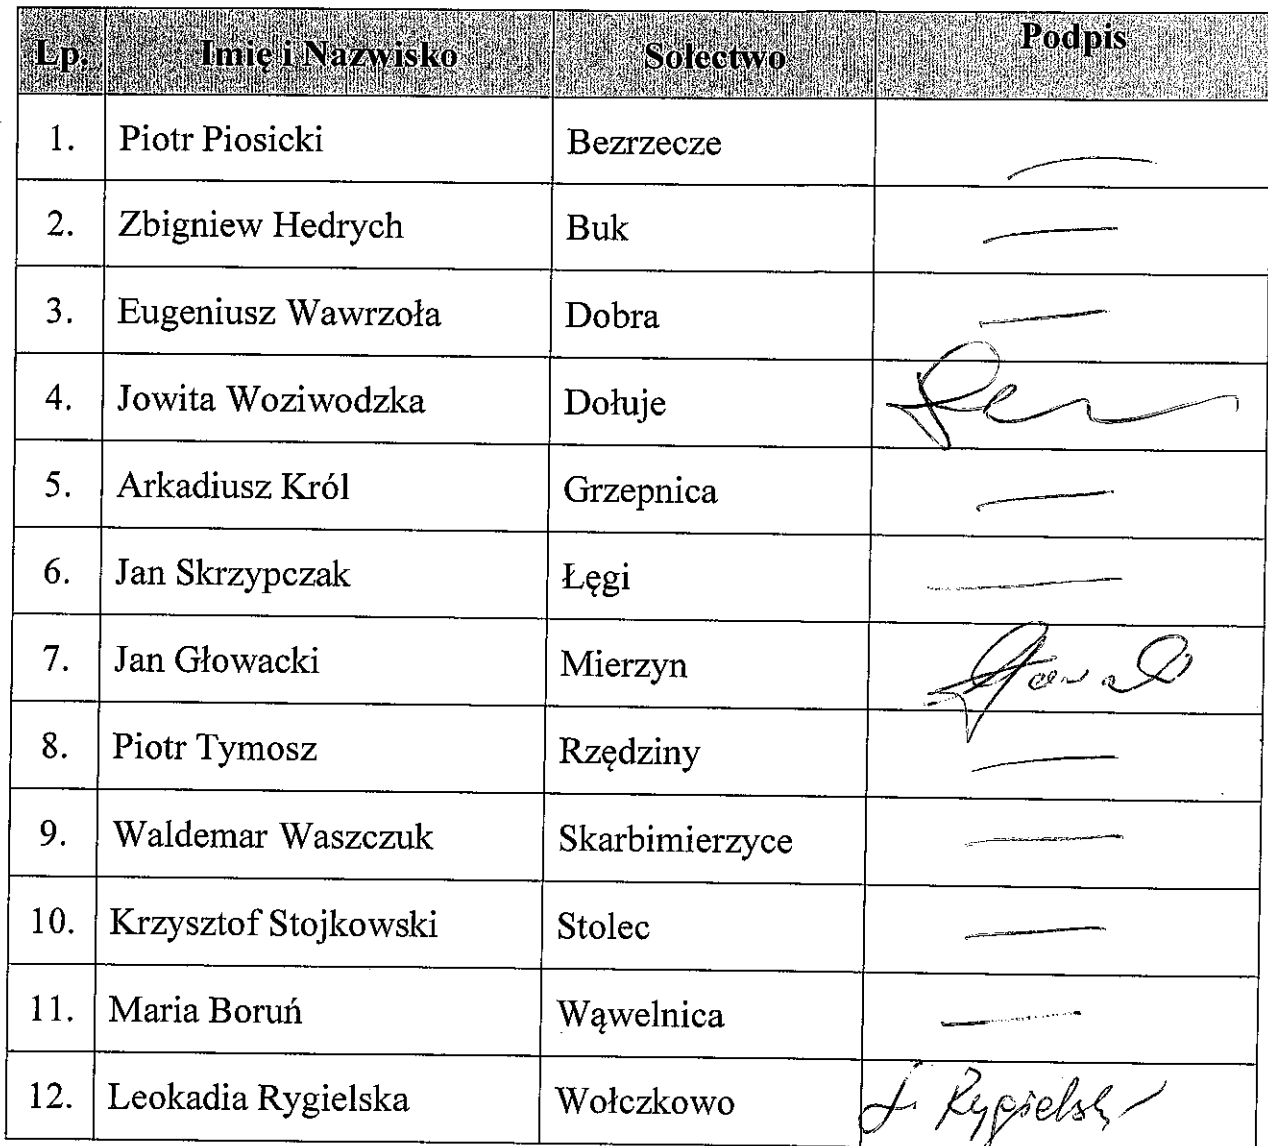 Lp. Imię i Nazwisko Sołectwo Podpis
1. Piotr Piosicki Bezrzecze —
2. Zbigniew Hedrych Buk —
3. Eugeniusz Wawrzoła Dobra —
4. Jowita Woziwodzka Dołuje
5. Arkadiusz Król Grzepnica —
6. Jan Skrzypczak Łęgi —
7. Jan Głowacki Mierzyn
8. Piotr Tymosz Rzędziny —
9. Waldemar Waszczuk Skarbimierzyce —
10. Krzysztof Stojkowski Stolec —
11. Maria Boruń Wąwelnica —
12. Leokadia Rygielska Wołczkowo